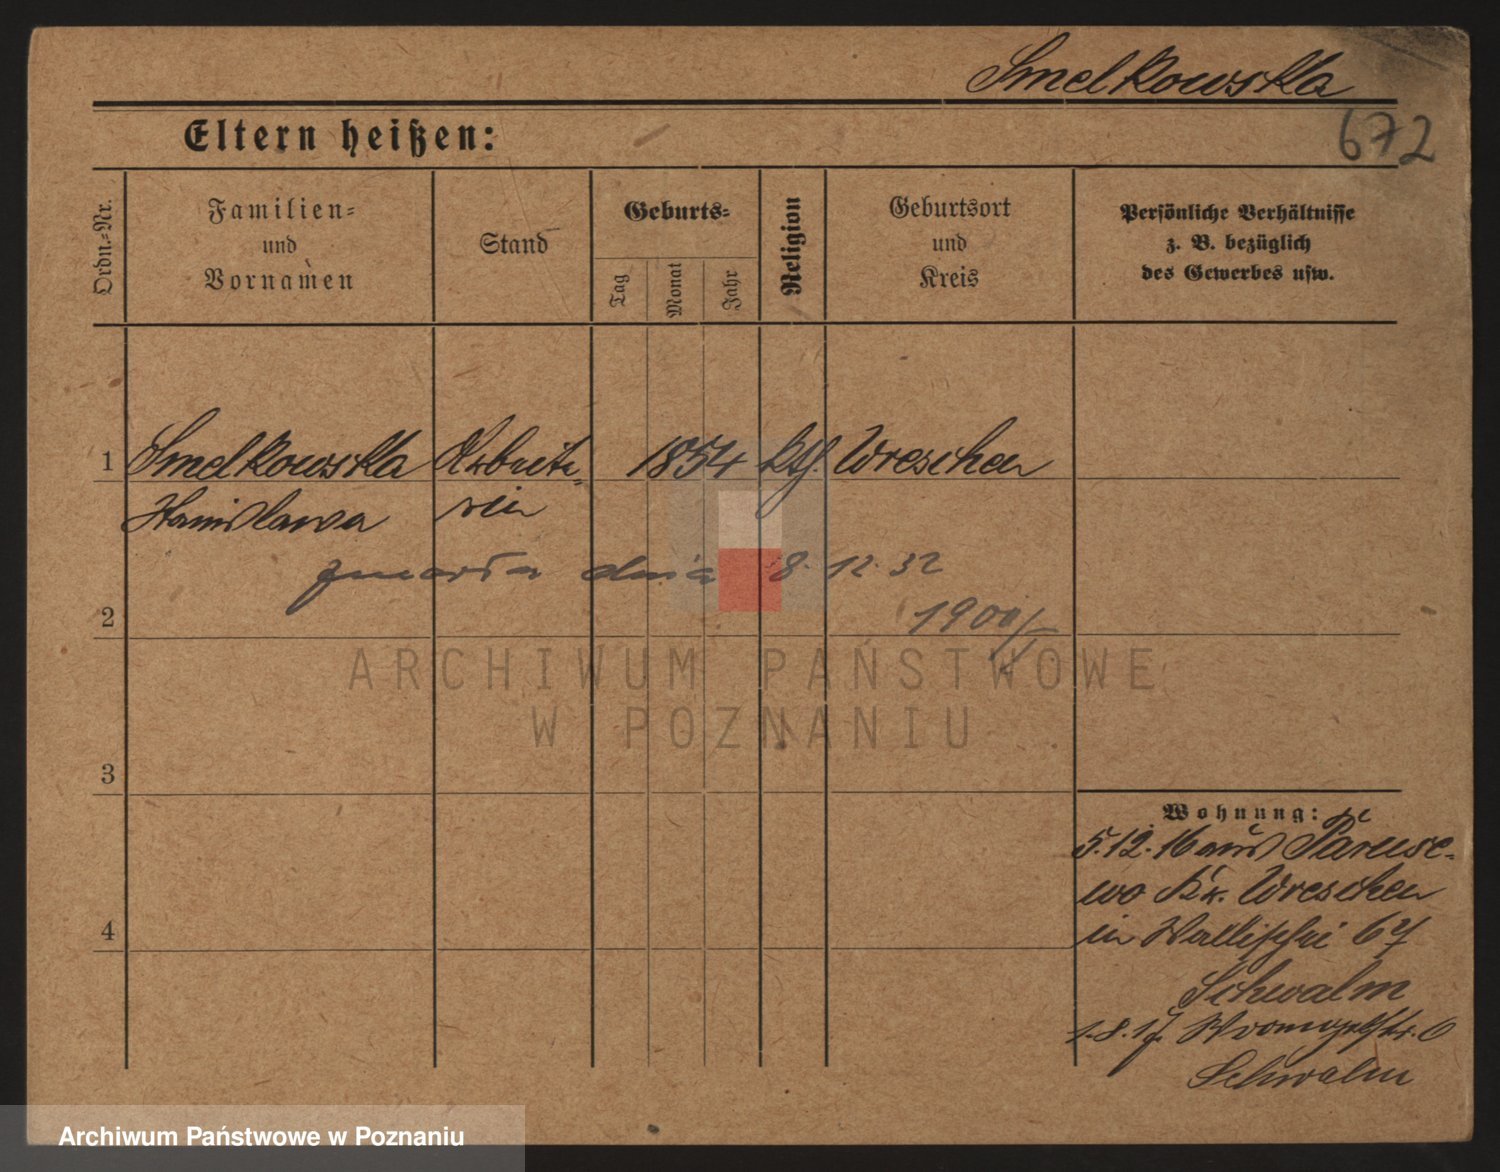 Smelkowska
672
Eltern heißen:
Ordn.-Nr.
Familien-
und
Vornamen
Stand
Geburts-
Tag
Monat
Jahr
Religion
Geburtsort
und
Kreis
Persönliche Verhältnisse
z. B. bezüglich
des Gewerbes usw.
1 Smelkowska Arbeite- 1854 kth. Wreschen
Stanislawa rin
zmarła dnia 8. 12. 32
2
1900/
ARCHIWUM PAŃSTWOWE
W POZNANIU
3
Wohnung:
5.12.16 aus
wo Kr. Wreschen
in Wallischei 67
4
Schwalm
1.8.17.
Schwalm
Archiwum Państwowe w Poznaniu